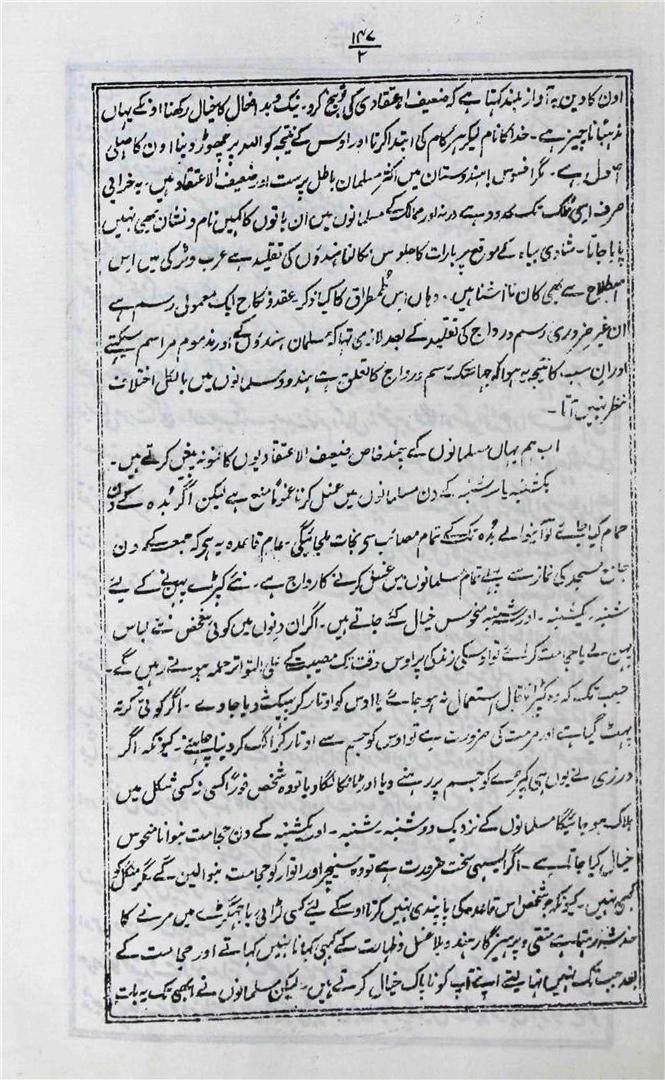 ۱۴۷
۲
اون کا دین بہ آواز بلند کہتا ہے کہ ضعیف الاعتقادی کی بیخ کرو۔ نیک و بد افعال کا خیال رکھنا اونکے یہاں
مذہباً ناچیز ہے۔ خدا کا نام لیکر ہر کام کی ابتدا کرنا اور اوس کے نتیجہ کو اللہ پر چھوڑ دینا اون کا اصلی
اصول ہے۔ مگر افسوس ہندوستان میں اکثر مسلمان باطل پرست اور ضعیف الاعتقاد ہیں۔ یہ خرابی
صرف اسی ملک تک محدود ہے ورنہ اور ممالک کے مسلمانوں میں ان باتوں کا کہیں نام و نشان بھی نہیں
پایا جاتا۔ شادی بیاہ کے موقع پر بارات کا جلوس نکالنا ہندؤں کی تقلید ہے عرب و ٹرکی میں اس
اصطلاح سے بھی کان نا آشنا ہیں۔ وہاں اس طمطراق کا کیا ذکر عقد و نکاح ایک معمولی رسم ہے
ان غیر ضروری رسم و رواج کی تقلید کے بعد لازمی تہا کہ مسلمان ہندوؤں کے اور مذموم مراسم سیکہتے
اور ان سب کا نتیجہ یہ ہوا کہ جہانتک رسم و رواج کا تعلق ہے ہندو و مسلمانوں میں بالکل اختلاف
نظر نہیں آتا۔
اب ہم یہاں مسلمانوں کے چند خاص ضعیف الاعتقادیوں کا نمونہ پیش کرتے ہیں۔
یکشنبہ یا سہ شنبہ کے دن مسلمانوں میں غسل کرنا عموماً منع ہے لیکن اگر بُدہ کے دن
حمام کیا جائے تو آنیوالے بُدہ تک کے تمام مصائب سے نجات ملجائیگی۔ عام قاعدہ یہ ہے کہ جمعہ کے دن
جامع مسجد کی نماز سے پہلے تمام مسلمانوں میں غسل کرنے کا رواج ہے۔ نئے کپڑے پہننے کے لیے
شنبہ۔ یکشنبہ۔ اور سہ شنبہ منحوس خیال کئے جاتے ہیں۔ اگر ان دنوں میں کوئی شخص نئے لباس
پہن لے یا حجامت کرائے تو اوسکی زندگی پر اوس وقت تک مصیبت کے علی التواتر حملہ ہوتے رہیں گے۔
جب تک کہ وہ کپڑا ناقابل استعمال نہ ہو جائے یا اوس کو اوتار کر پھینک دیا جاوے۔ اگر کوئی کرتہ
پہٹ گیا ہے اور مرمت کی ضرورت ہے تو اوس کو جسم سے اوتار کر الگ کر دینا چاہیئے۔ کیونکہ اگر
درزی نے یوں ہی کپڑے کو جسم پر رہنے دیا اور ٹانکا لگا دیا تو وہ شخص فوراً کسی نہ کسی شکل میں
ہلاک ہو جائیگا مسلمانوں کے نزدیک دو شنبہ سہ شنبہ۔ اور یکشنبہ کے دن حجامت بنوانا منحوس
خیال کیا جاتا ہے۔ اگر ایسی سخت ضرورت ہے تو وہ سنیچر اور اتوار کو حجامت بنوالیں۔ گے مگر منگل کو
کبھی نہیں۔ کیونکہ جو شخص اس قاعدہ کی پابندی نہیں کرتا اوسکے لیے کسی لڑائی یا جہگڑے میں مرنے کا
خدشہ رہتا ہے متقی و پرہیزگار ہندو بلا غسل و طہارت کے کبھی کہانا نہیں کہاتے اور حجامت کے
بعد جب تک نہیں نہا لیتے اپنے آپ کو ناپاک خیال کرتے ہیں۔ لیکن مسلمانوں نے ابھی تک یہ بات